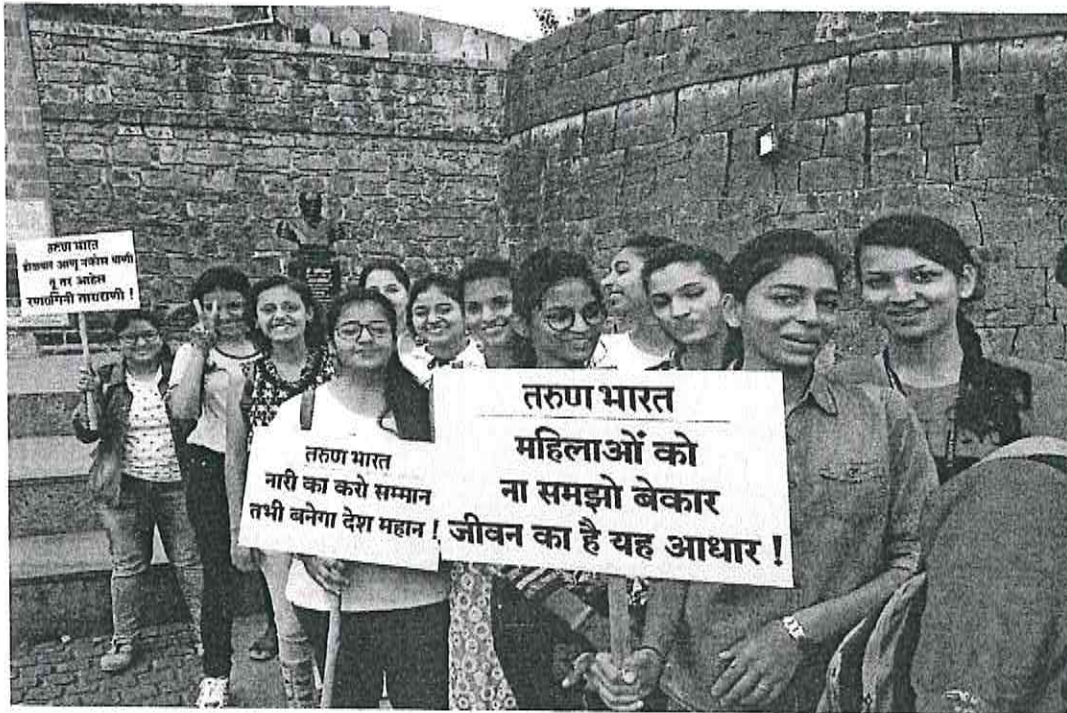 तरुण भारत
तू तर आहेस
रणरागिनी ताराराणी !
तरुण भारत
नारी का करो सम्मान
तभी बनेगा देश महान !
तरुण भारत
महिलाओं को
ना समझो बेकार
जीवन का है यह आधार !